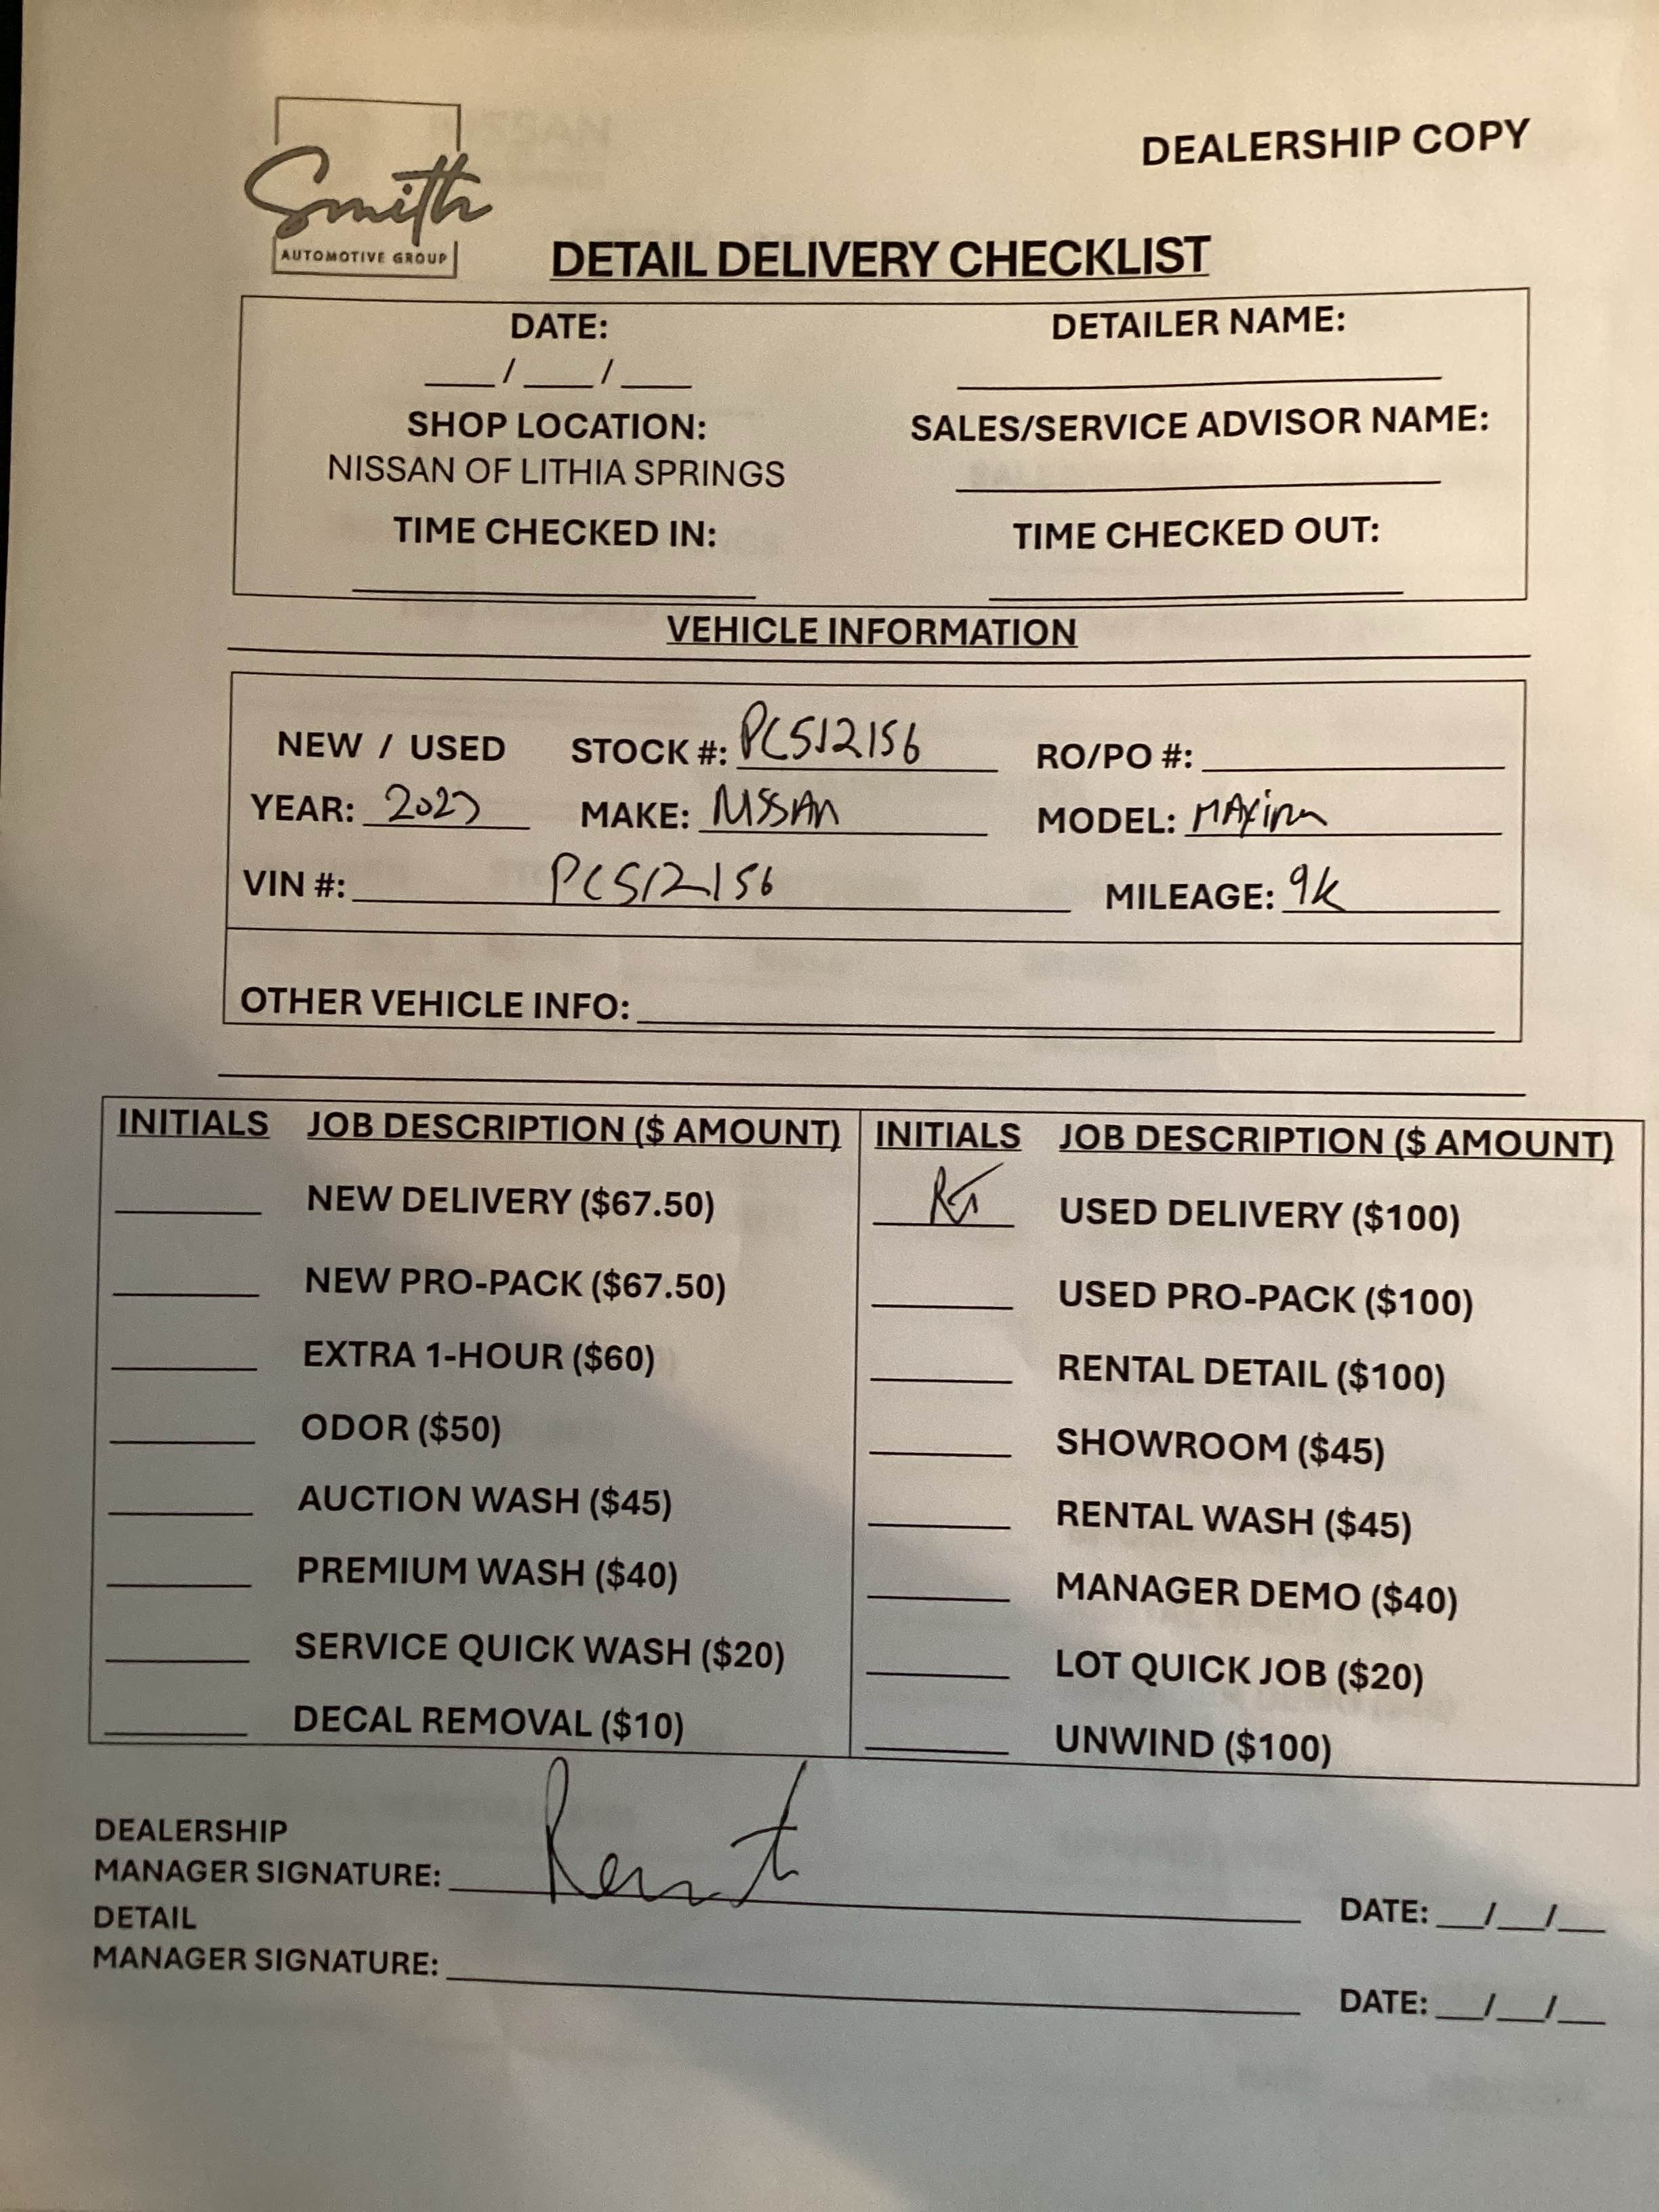 Smith
AUTOMOTIVE GROUP
DEALERSHIP COPY
DETAIL DELIVERY CHECKLIST
DATE: DETAILER NAME:
___/___/___ ____________
SHOP LOCATION: SALES/SERVICE ADVISOR NAME:
NISSAN OF LITHIA SPRINGS ____________
TIME CHECKED IN: TIME CHECKED OUT:
____________ ____________
VEHICLE INFORMATION
NEW / USED STOCK #: PC512156 RO/PO #: ____________
YEAR: 2023 MAKE: NISSAN MODEL: MAXima
VIN #: PC512156 MILEAGE: 9k
OTHER VEHICLE INFO: ____________
INITIALS JOB DESCRIPTION ($ AMOUNT) INITIALS JOB DESCRIPTION ($ AMOUNT)
____ NEW DELIVERY ($67.50) RT USED DELIVERY ($100)
____ NEW PRO-PACK ($67.50) ____ USED PRO-PACK ($100)
____ EXTRA 1-HOUR ($60) ____ RENTAL DETAIL ($100)
____ ODOR ($50) ____ SHOWROOM ($45)
____ AUCTION WASH ($45) ____ RENTAL WASH ($45)
____ PREMIUM WASH ($40) ____ MANAGER DEMO ($40)
____ SERVICE QUICK WASH ($20) ____ LOT QUICK JOB ($20)
____ DECAL REMOVAL ($10) ____ UNWIND ($100)
DEALERSHIP
MANAGER SIGNATURE: ____________ DATE: __/__/__
DETAIL
MANAGER SIGNATURE: ____________ DATE: __/__/__